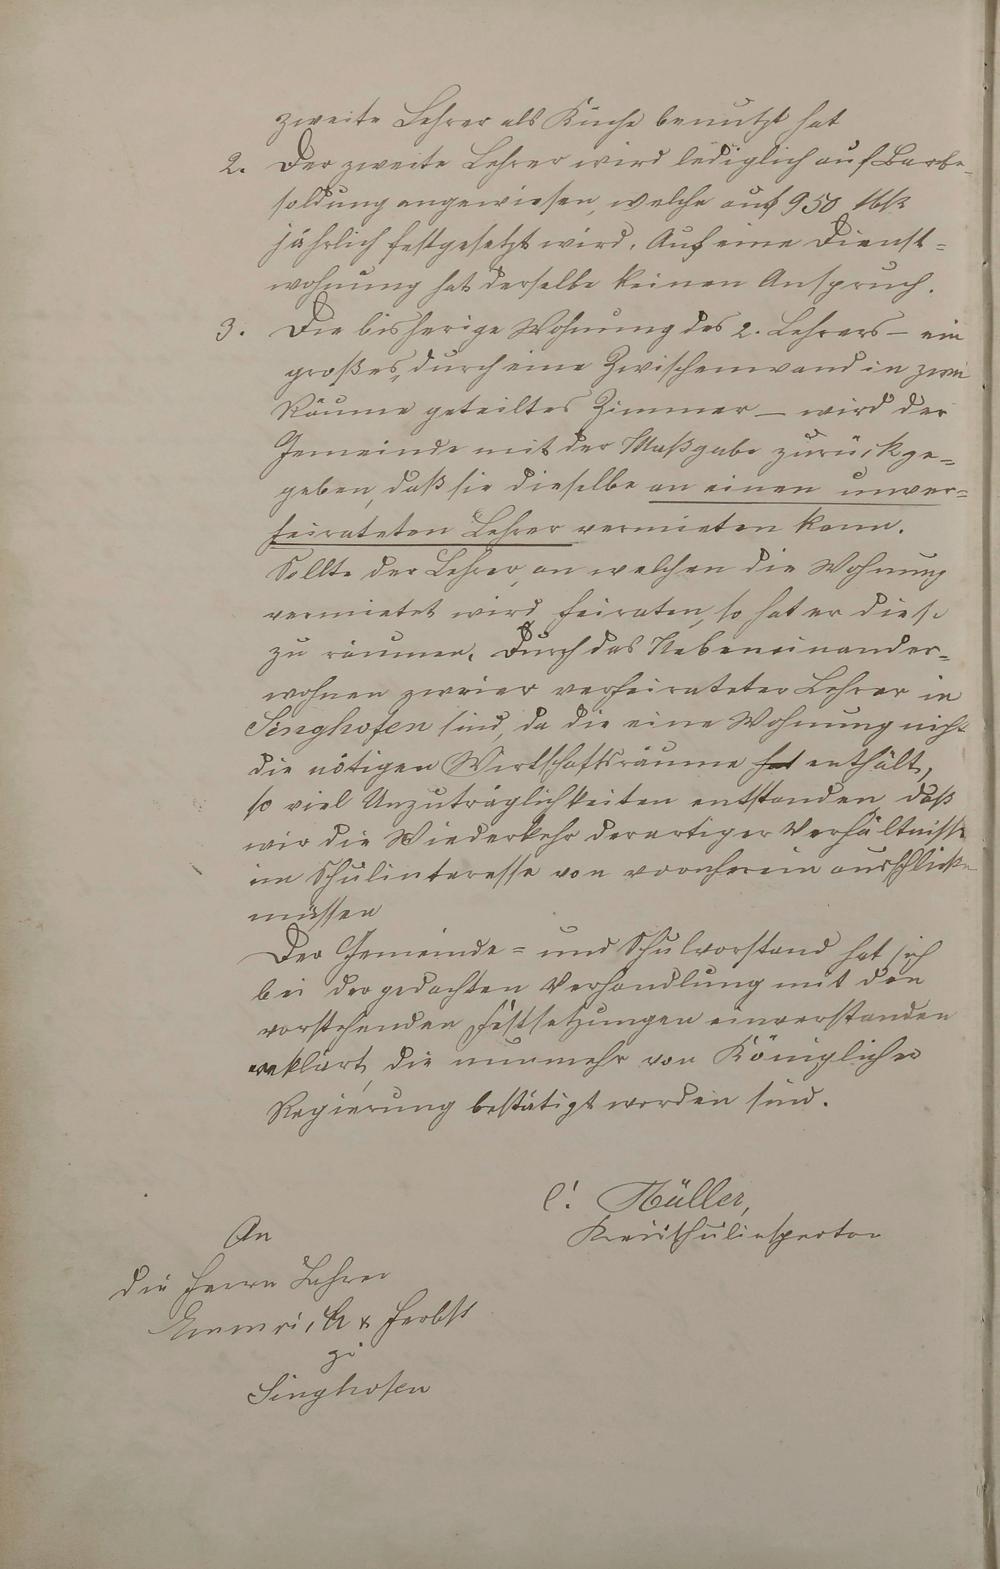 zweite Lehrer als Küche benutzt hat
2. Der zweite Lehrer wird lediglich auf Barbe-
soldung angewiesen, welche auf 950 Mk
jährlich festgesetzt wird. Auf eine Dienst-
wohnung hat derselbe keinen Anspruch.
3. Die bisherige Wohnung des 2. Lehrers – ein
großes, durch eine Zwischenwand in zwei
Räume geteiltes Zimmer – wird der
Gemeinde mit der Maßgabe zurückge-
geben, daß sie dieselbe an einen unver-
heirateten Lehrer vermieten kann.
Sollte der Lehrer, an welchen die Wohnung
vermietet wird, heiraten, so hat er diese
zu räumen. Durch das Nebeneinander-
wohnen zweier verheirateter Lehrer in
Singhofen sind, da die eine Wohnung nicht
die nötigen Wirtschaftsräume hat enthält,
so viel Unzuträglichkeiten entstanden, daß
wir die Wiederkehr derartiger Verhältnisse
im Schulinteresse von vornherein ausschließen
müssen
Der Gemeinde- und Schulvorstand hat sich
bei der gedachten Verhandlung mit den
vorstehenden Festsetzungen einverstanden
erklärt, die nunmehr von Königlicher
Regierung bestätigt worden sind.
Müller,
Kreisschulinspektor
An
die Herrn Lehrer
Emmrich & Herbst
zu
Singhofen